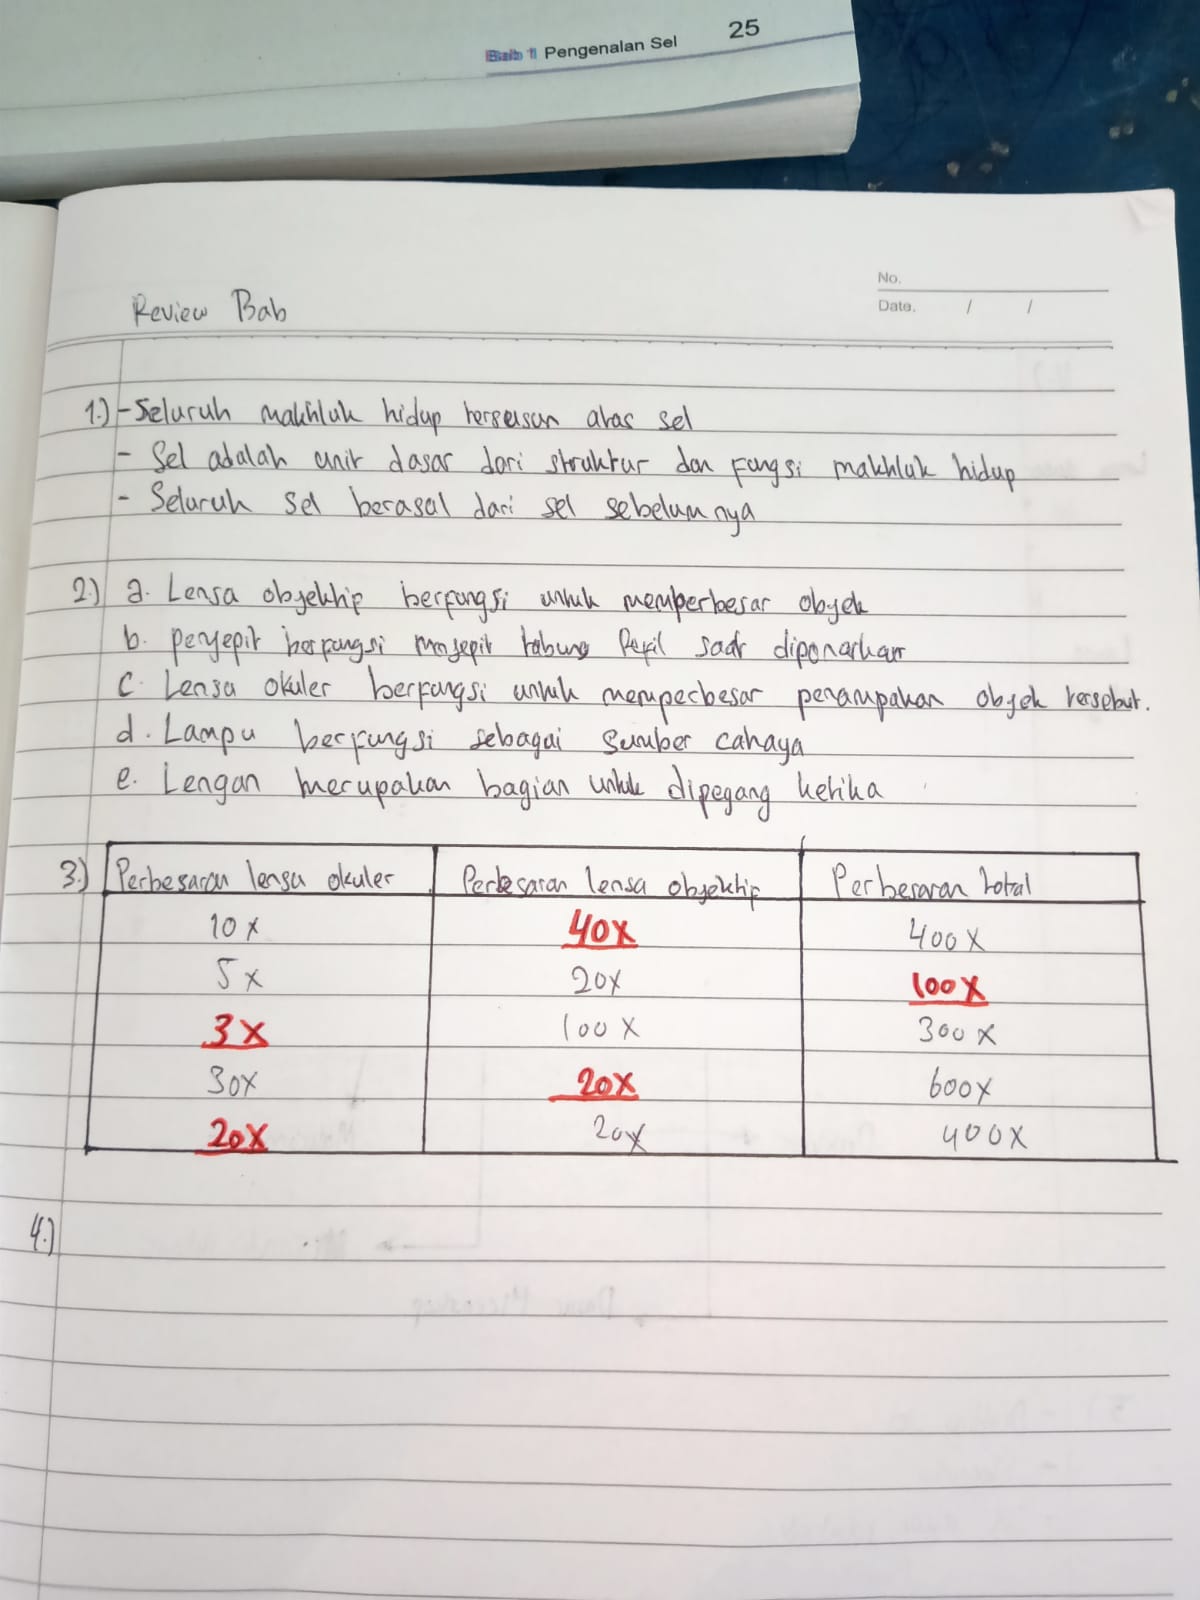 Bab 1 Pengenalan Sel 25
No.
Date. / /
Review Bab
1.) - Seluruh makhluk hidup tersusun atas sel
- Sel adalah unit dasar dari struktur dan fungsi makhluk hidup
- Seluruh sel berasal dari sel sebelumnya
2.) a. Lensa obyektip berfungsi untuk memperbesar obyek
b. penyepit berfungsi menjepit tabung saat
c. Lensa okuler berfungsi untuk memperbesar penampakan obyek tersebut.
d. Lampu berfungsi sebagai sumber cahaya
e. Lengan merupakan bagian untuk dipegang ketika
3.) Perbesaran lensa okuler Perbesaran lensa obyektip Perbesaran total
10x 40x 400x
5x 20x 100x
3x 100x 300x
30x 20x 600x
20x 20x 400x
4.)